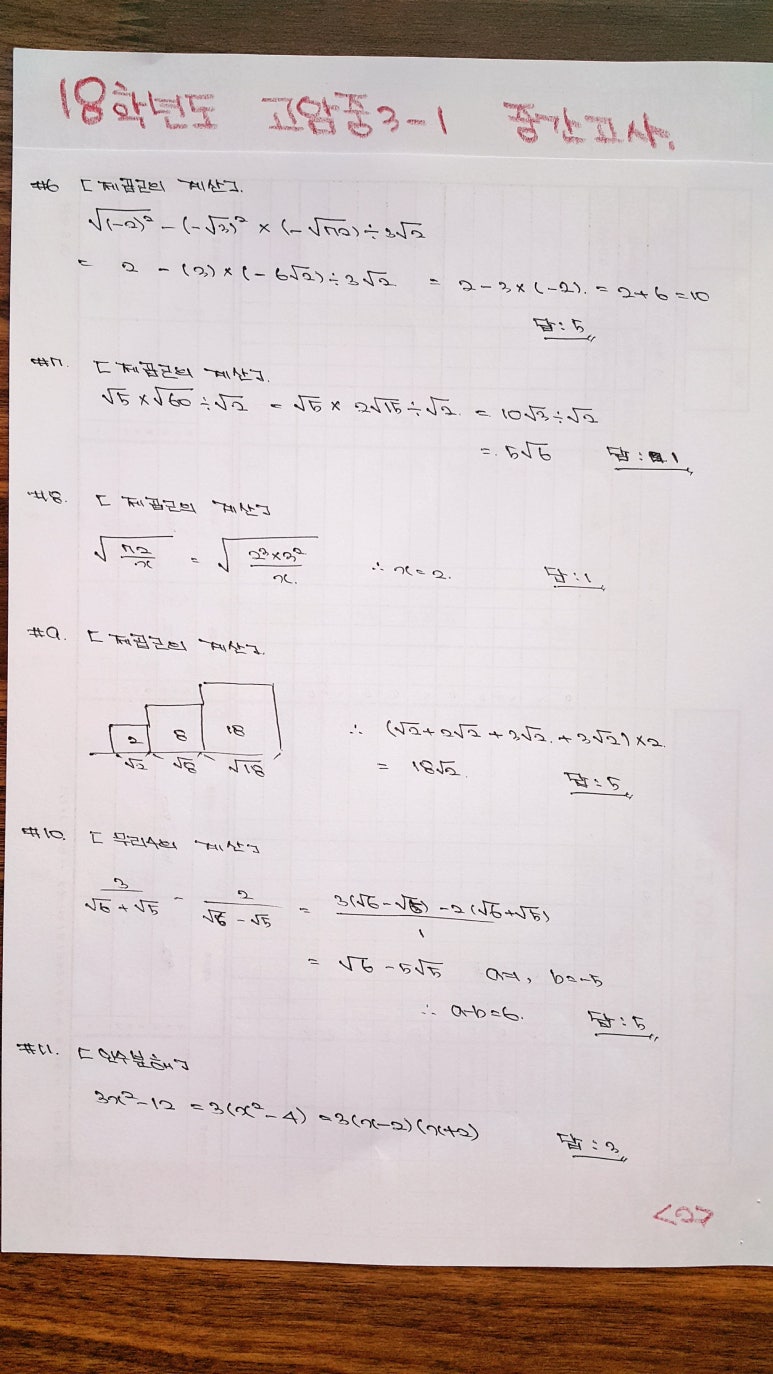 18학년도 고암중3-1 중간고사.
#6 [제곱근의 계산].
√(-2)² - (-√3)² × (-√72) ÷ 3√2
= 2 - (3) × (-6√2) ÷ 3√2 = 2-3×(-2). = 2+6 = 10
답 : 5
#7. [제곱근의 계산].
√5 × √60 ÷ √2 = √5 × 2√15 ÷ √2. = 10√3 ÷ √2
= 5√6 답 : 1
#8. [제곱근의 계산]
√(72/x) = √(2³×3²/x) ∴ x = 2. 답 : 1
#9. [제곱근의 계산].
2 8 18
√2 √8 √18
∴ (√2 + 2√2 + 3√2. + 3√2) × 2.
= 18√2. 답 : 5
#10. [무리수의 계산]
3/(√6 + √5) - 2/(√6 - √5) = (3(√6 - √5) - 2(√6 + √5))/1
= √6 - 5√5 a=1, b=-5
∴ a-b=6. 답 : 5
#11. [인수분해]
3x²-12 = 3(x²-4) = 3(x-2)(x+2) 답 : 3
<2>